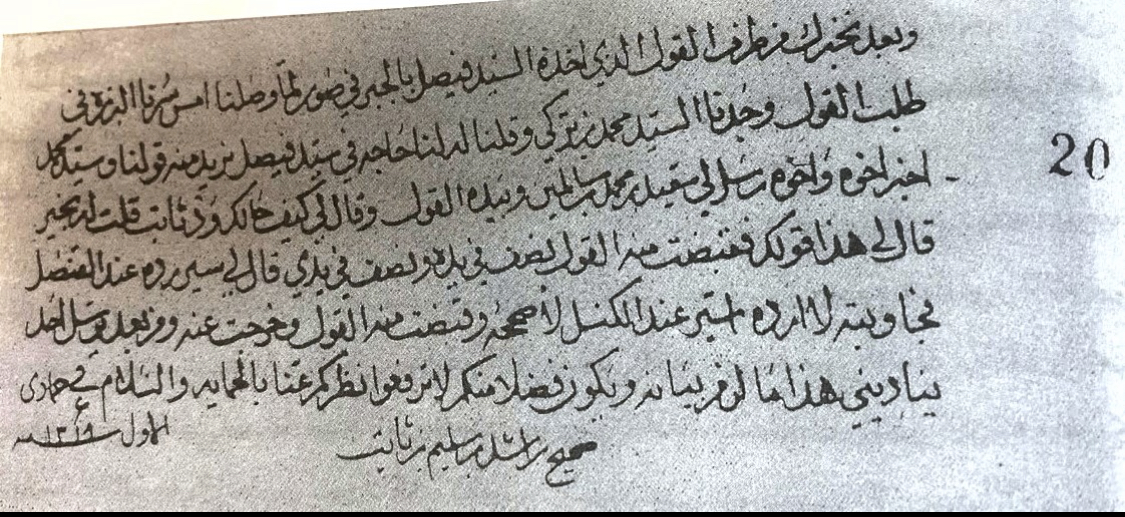 وبعد نخبرك من طرف القول الذي اخذه السيد فيصل بالجبر في صور لما وصلنا امس سرنا البرزة في
طلب القول وجدنا السيد محمد بن تركي وقلنا له لنا حاجه في سيد فيصل نريد منه قولنا وسيد محمد
اخبر اخوه واخوه رسل لي سعيد بن محمد وبيده القول وقال لي كيف حالكم ولد ثابت قلت له بخير
20
قال لي هذا قولكم فقبضت منه القول نصف في يده ونصف في يدي قال لي سير رده عند القنصل
فجاوبته لا ارده اسير عند الكنسل لا صححه وقبضت منه القول وخرجت عنه ومن بعد يوسل احد
يناديني هذا ما لزم بيانه ويكون فضلا منكم لا ترفعوا نظركم عنا بالحمايه والسلام في جمادى
الاول سنة ١٣١٩
صحيح راشد بن سليم بن ثابت